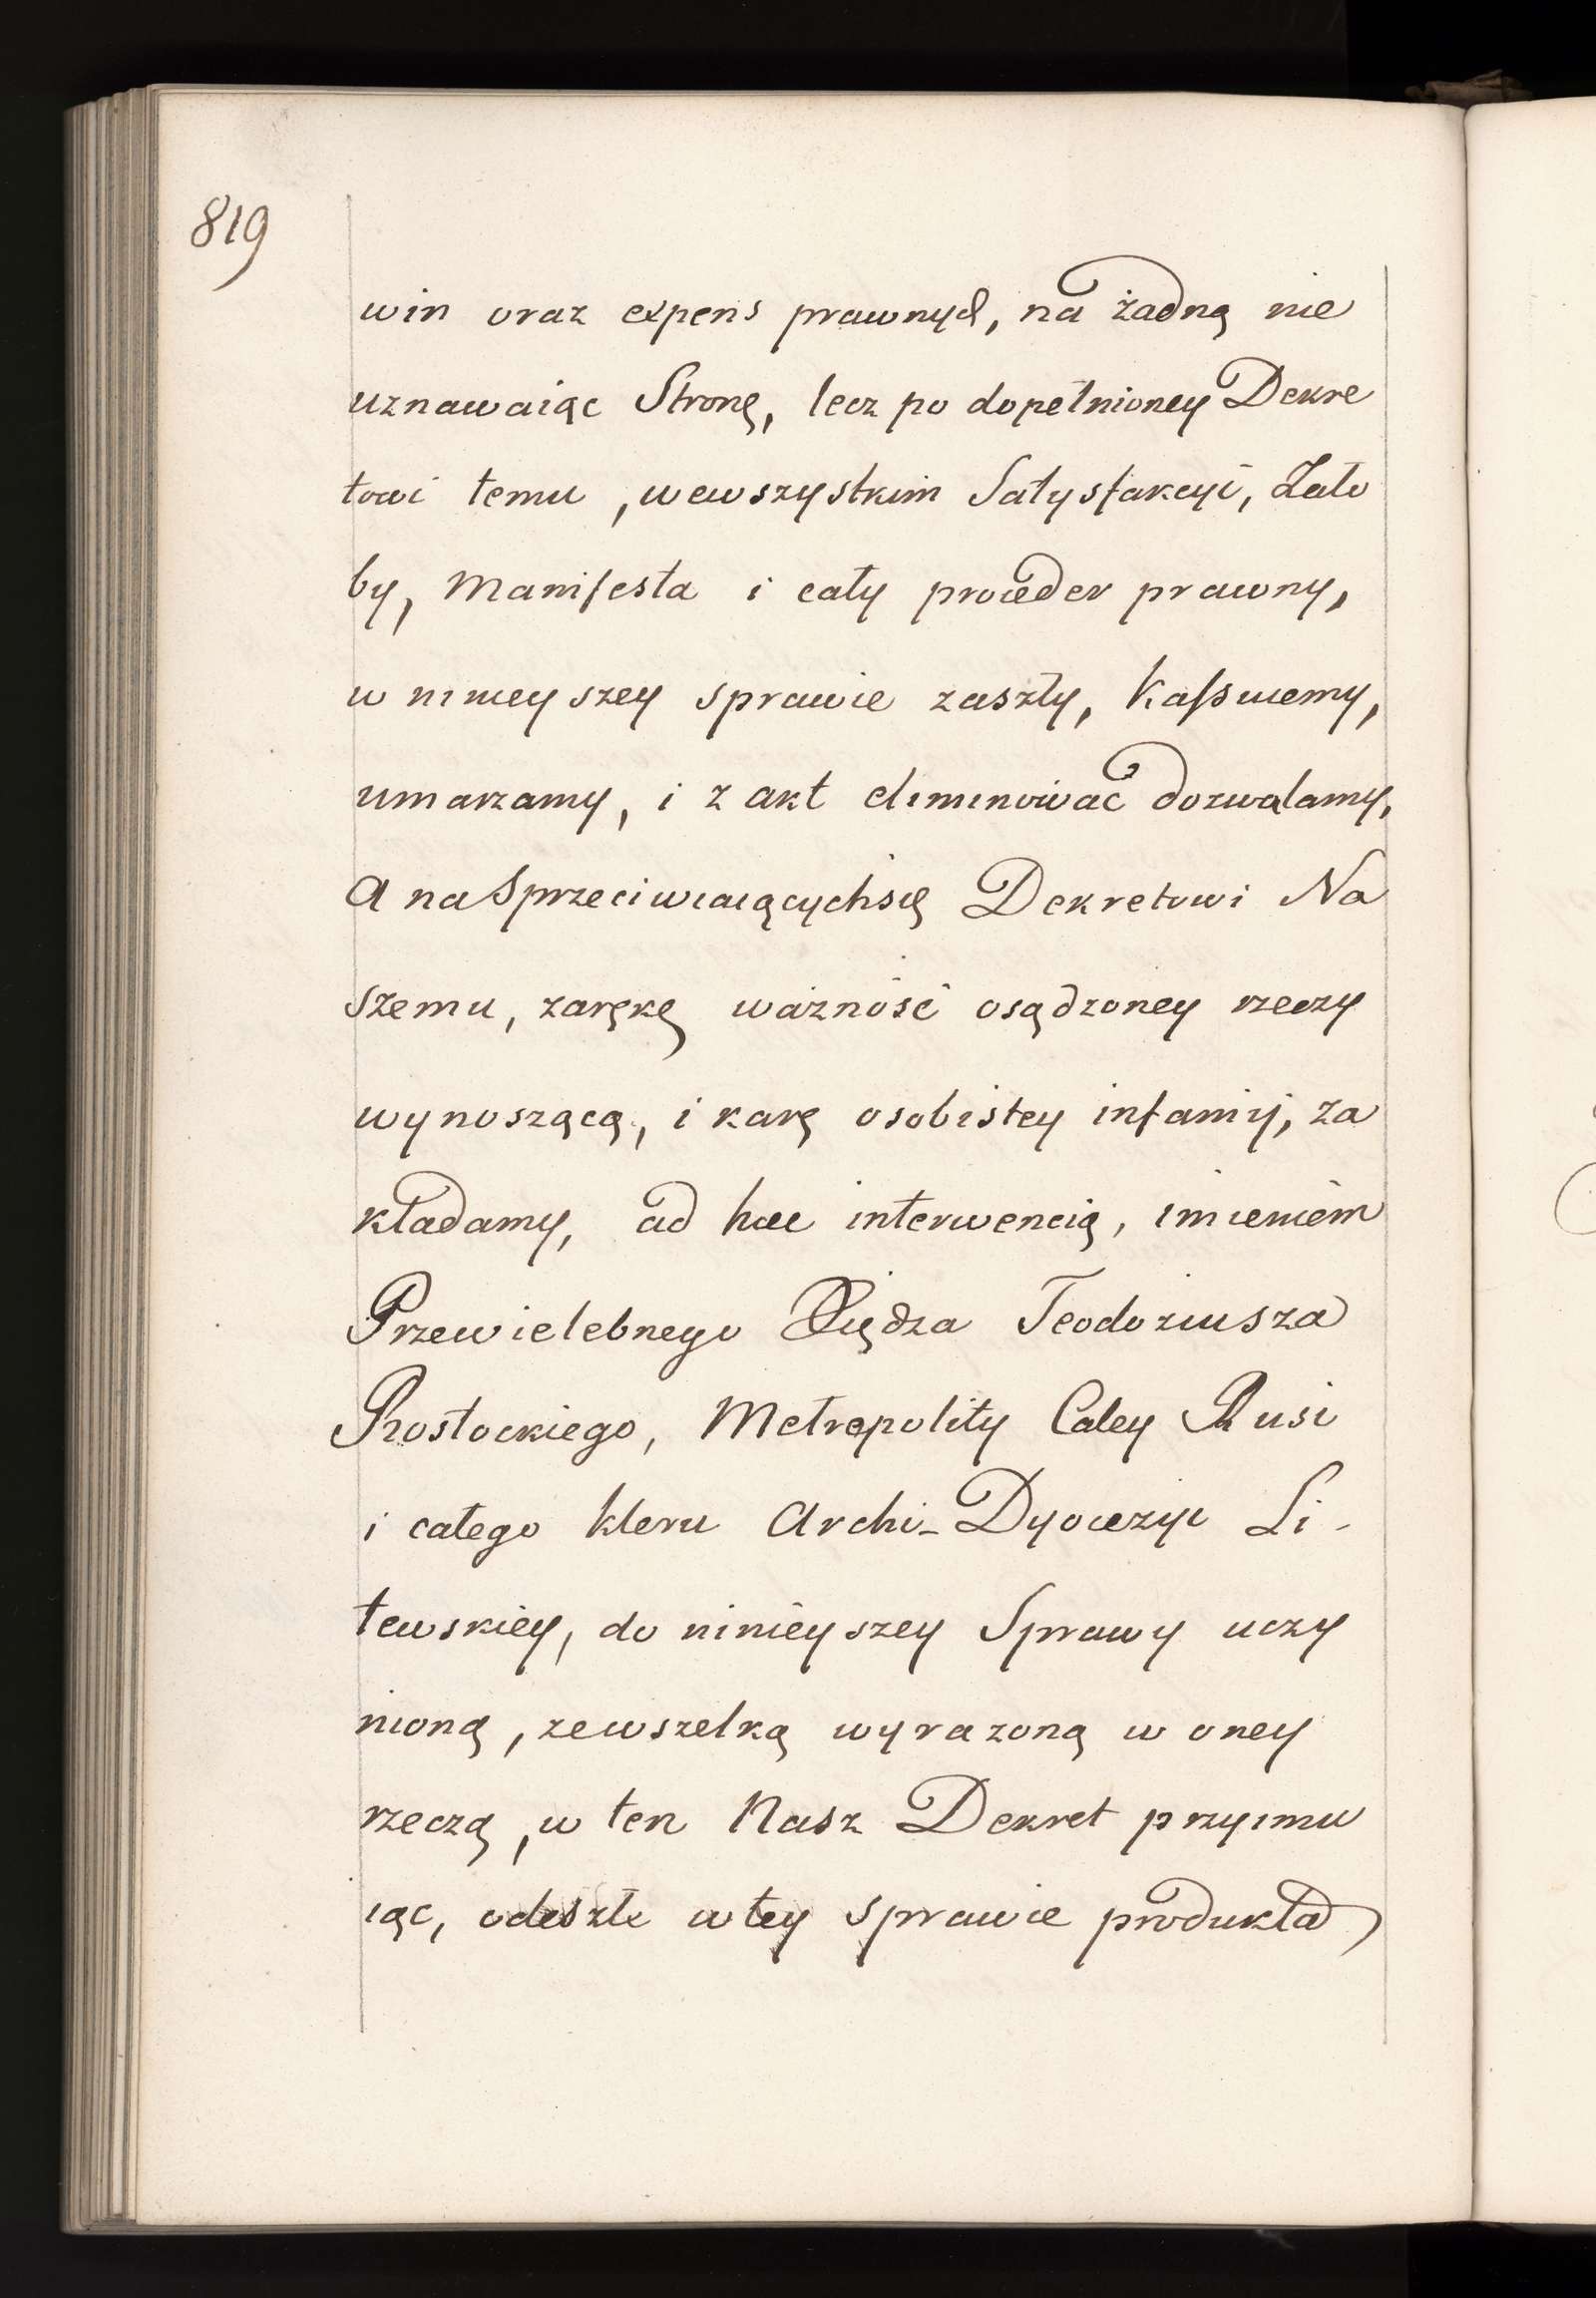 819
win oraz expens prawnych, na żadną nie
uznawaiąc Stronę, lecz po dopełnioney Dekre
towi temu, wewszystkim Satysfakcyi, Żało
by, Manifesta i cały proceder prawny,
w ninieyszey sprawie zaszły, Kassuiemy,
umarzamy, i z akt eliminować dozwalamy,
A na Sprzeciwiaiącychsię Dekretowi Na
szemu, zarękę ważność osądzoney rzeczy
wynoszącą, i karę osobistey infamij, za
kładamy, ad hæc interwencią, imieniem
Przewielebnego Xiędza Teodoziusza
Rostockiego, Metropolity Całey Rusi
i całego kleru Archi-Dyoecezyi Li-
tewskiey, do ninieyszey Sprawy uczy
nioną, zewszelką wyrazoną w oney
rzeczą, w ten Nasz Dekret przyimu
iąc, odeszłe wtey sprawie produkta